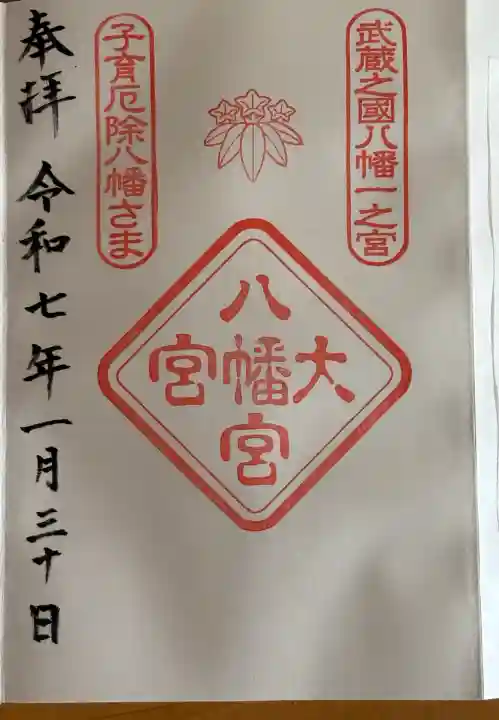 武蔵之國八幡一之宮
大宮
八幡宮
子育厄除八幡さま
奉拝 令和七年一月三十日